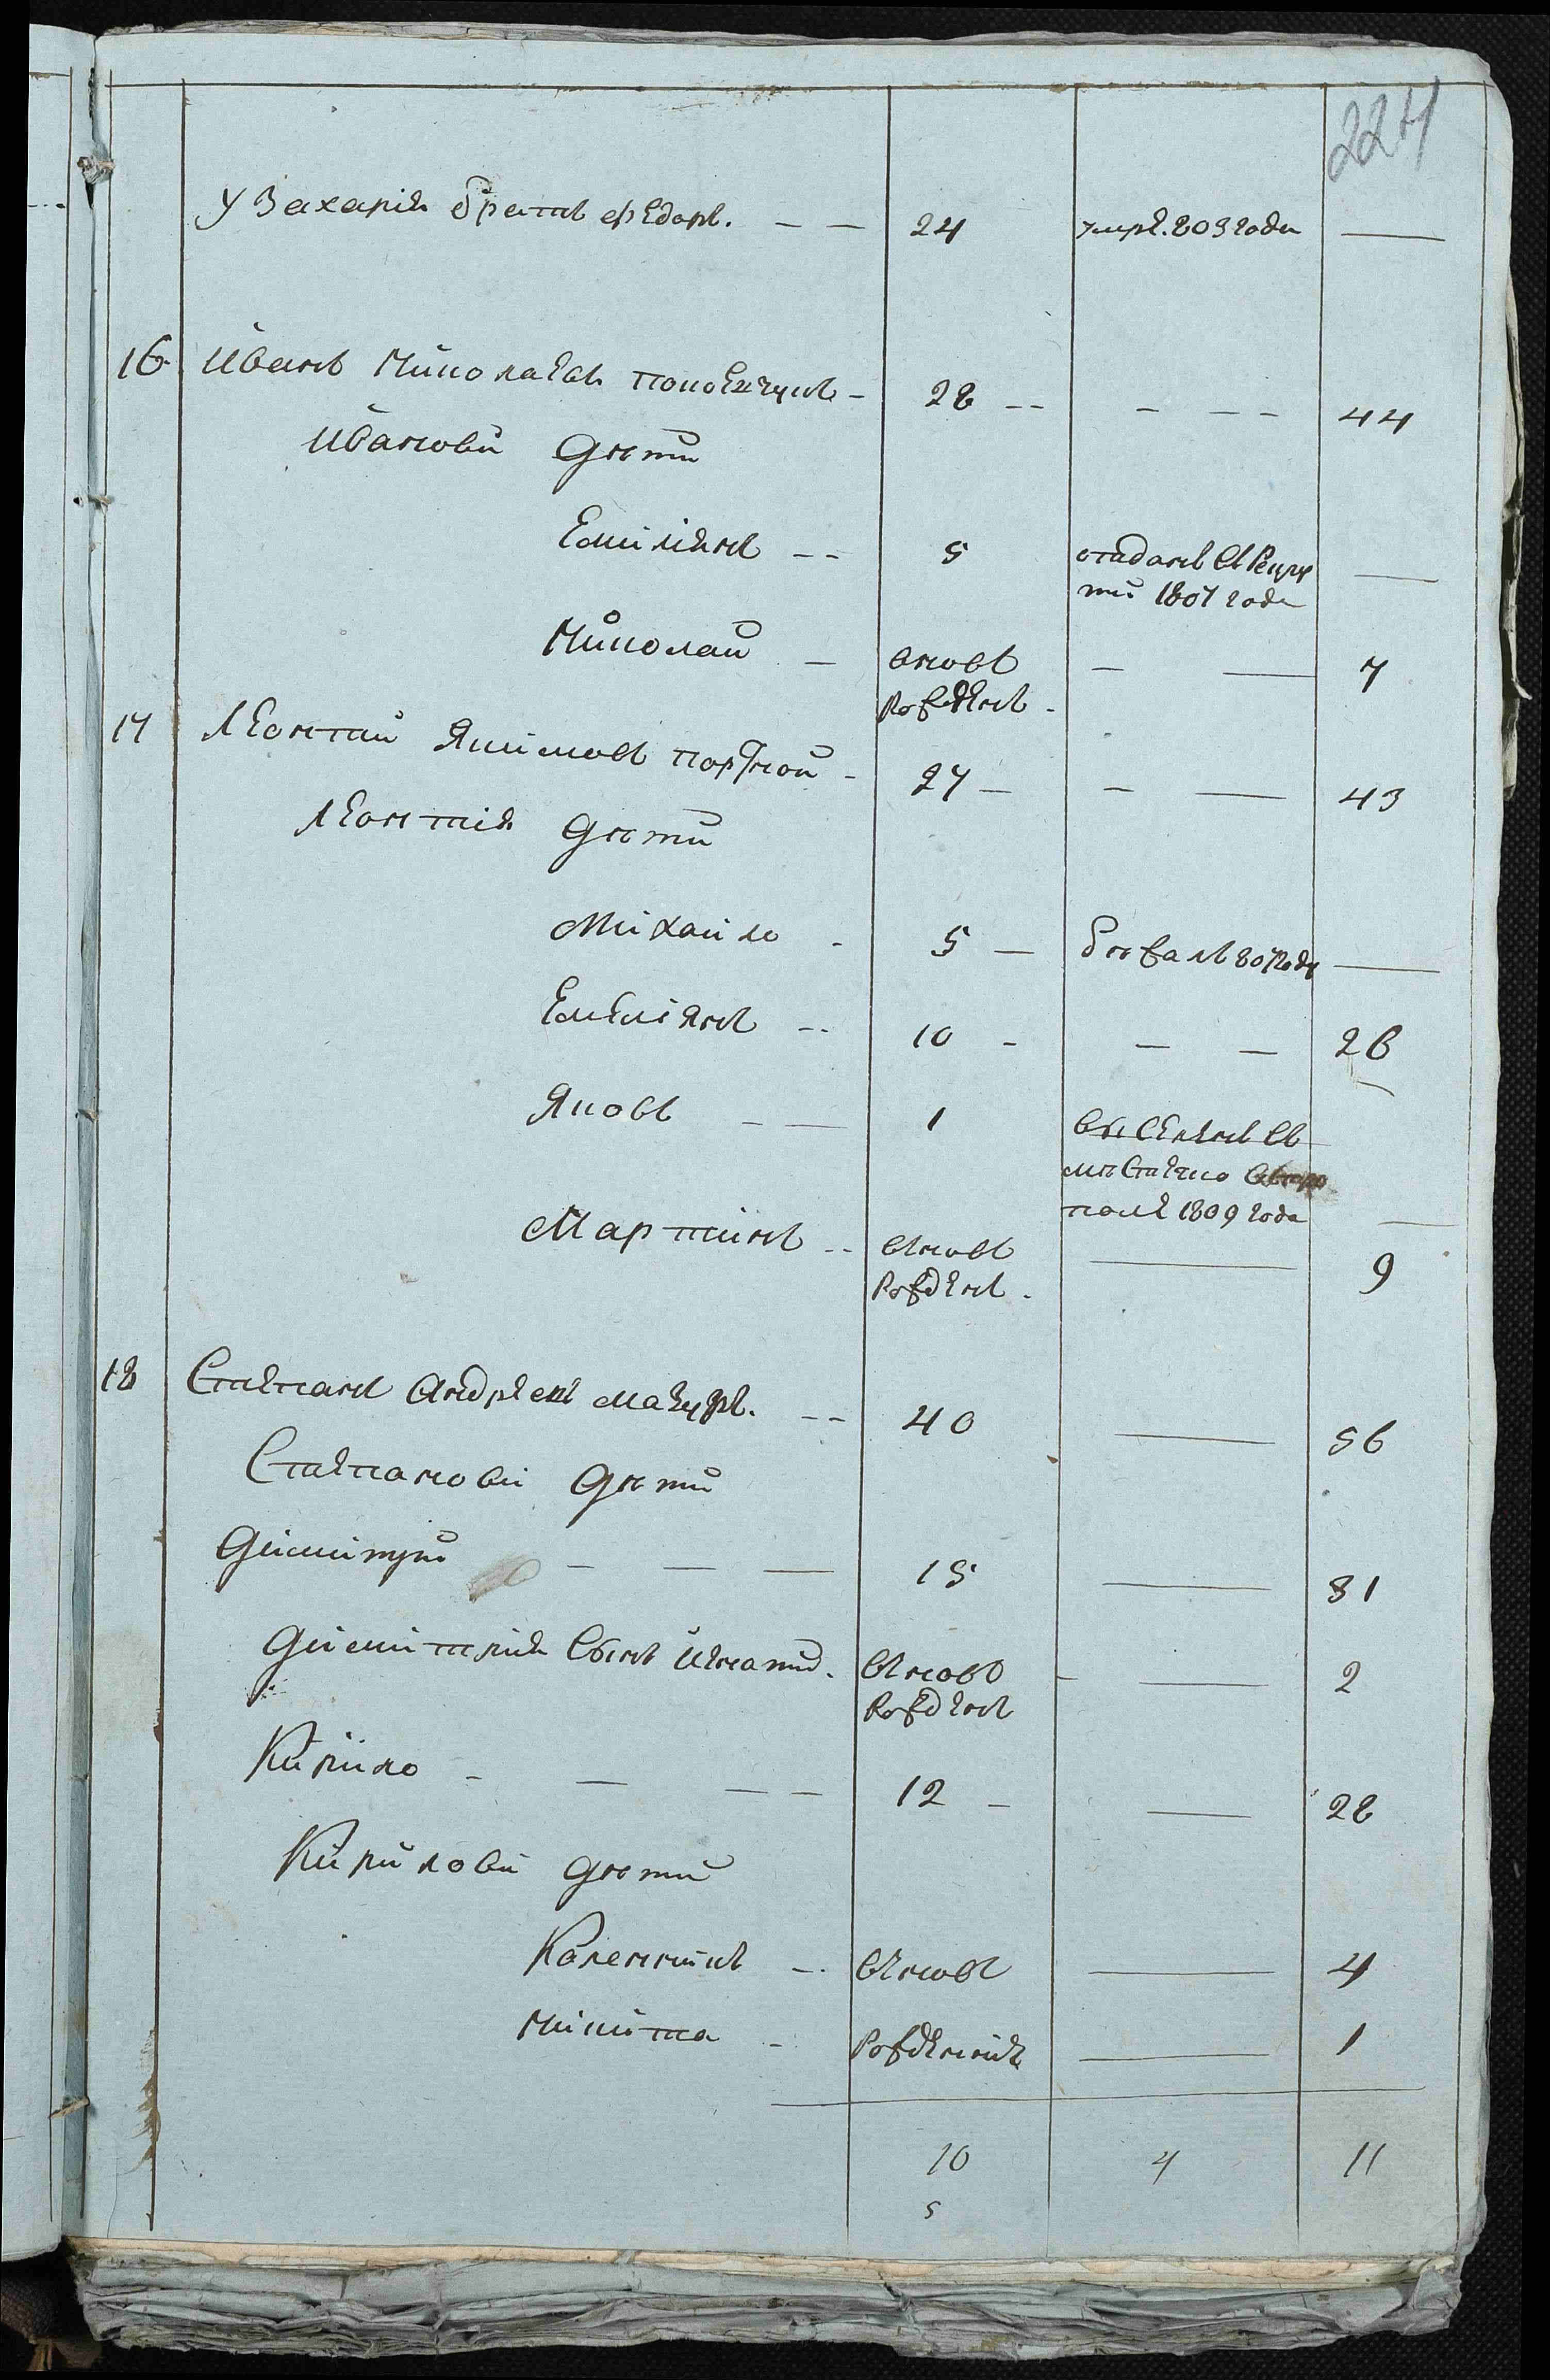 224
У Захарія братъ Федоръ. — — 24 умре. 803 года —
16 Иванъ Николаевъ - 28 -- — -- 44
Ивановы дѣти
Емілианъ -- 5 отданъ въ рекру
ты 1807 года —
Николай — вновъ
рожденъ - — — 7
17 Леонтий Якимовъ портной - 27 — — — 43
Леонтия дѣти
Михаило - 5 — бѣжалъ 807 году —
Емелианъ -- 10 - — — 26
Яковъ - — 1 выселенъ въ
мѣстечко
поле 1809 года —
Мартинъ -- вновъ
рожденъ. — 9
18 Степанъ Андреевъ мазуръ. -- 40 — 56
Степановы дѣти
Димитрий — — — 15 — 31
Димитрия сынъ Игнатий. вновъ
рожденъ - — 2
Кирило - — — — 12 — — 28
Кириловы дѣти
Каленникъ -. вновъ — 4
Никита - рожденние — 1
10 4 11
5